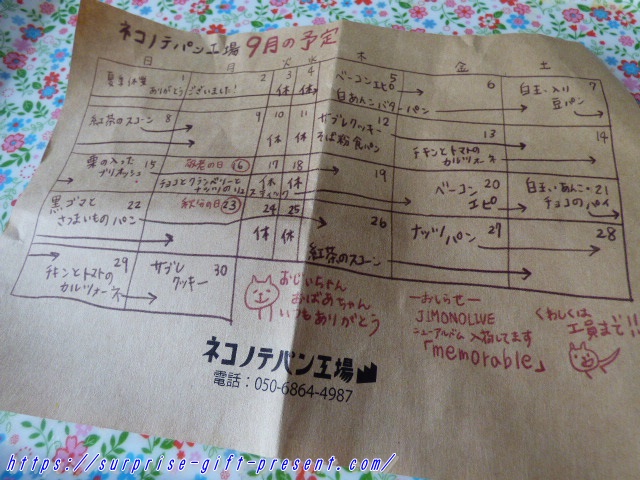 ネコノテパン工場 9月の予定
日 月 火 水 木 金 土
夏季休業 1
ありがとうございました!
2
3 休
4 休
ベーコンエピ 5
白あんこバターパン
6
白玉入り 7
豆パン
紅茶のスコーン 8
9
10 休
11 休
サブレクッキー 12
そば粉食パン
13
チキンとトマトの
カルツォーネ
14
栗の入った 15
ブリオッシュ
敬老の日 16
チョコとクランベリーと
ナッツの
スティック
17 休
18 休
19
ベーコン 20
エピ
白玉いあんこ 21
チョコのパイ
黒ゴマと 22
さつまいものパン
秋分の日 23
24 休
25 休
26
紅茶のスコーン
ナッツパン 27
28
29
チキンとトマトの
カルツォーネ
サブレ 30
クッキー
おじいちゃん
おばあちゃん
いつもありがとう
ーおしらせー
JIMONOLIVE
ニューアルバム 入荷してます
「memorable」
くわしくは
工員まで!!
ネコノテパン工場
電話:050-6864-4987
https://surprise-gift-present.com/